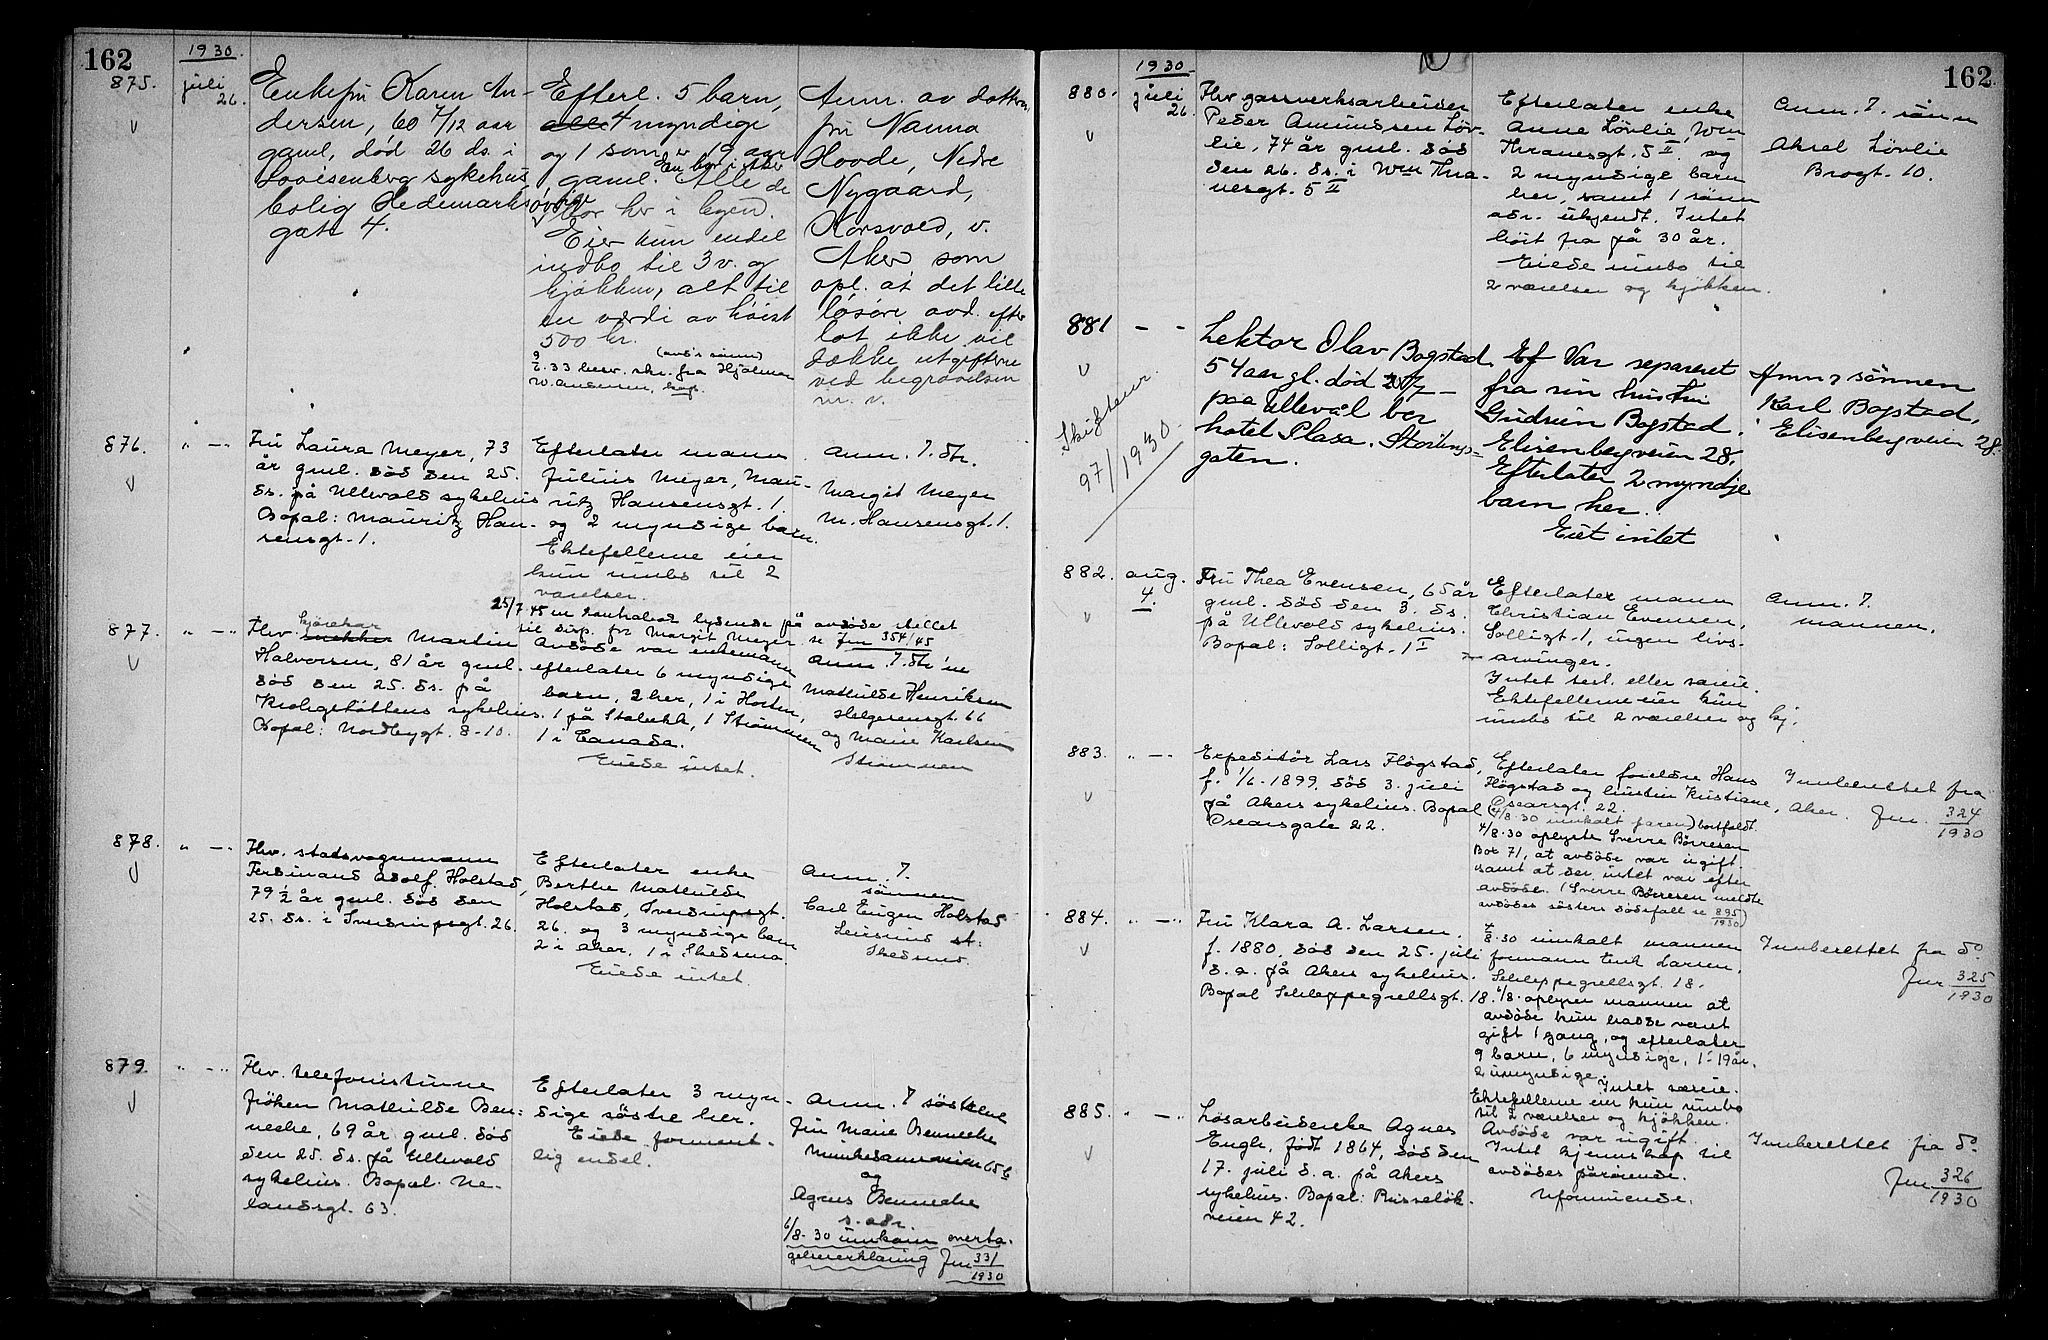 162
1930
875.
juli
26.
Enkefru Karen An-
dersen, 60 7/12 aar
gaml, død 26 ds. i
Lovisenberg sykehus
bolig Hedemarks
gate 4.
Efterl. 5 barn,
alle 4 myndige
og 1 som er 19 aar
gaml. En bor i
Alle de
øvrige
bor her i byen.
Eier kun endel
indbo til 3 v. og
kjøkken, alt til
en værdi av høist
500 kr.
(avd's sønn)
9/2.33 besv. skr. fra Hjalmar
W. Andersen,
Anm. av datteren
fru Nanna
Hovde, Nedre
Nygaard,
Korsvold, v.
Aker som
opl. at det lille
løsøre avd. efter
lot ikke vil
dække utgiftene
ved begravelsen
m. v.
876. " -"-
Fru Laura Meyer, 73
år gml. død den 25.
ds. på Ullevold sykehus
Bopal: Mauritz Han-
sensgt. 1.
Efterlater mann
Julius Meyer, Mau-
ritz Hansensgt. 1.
og 2 myndige barn.
Ektefellene eier
kun innbo til 2
værelser.
Anm. 7. dtr.
Margit Meyer
M. Hansensgt. 1.
25/7 45 en bankbok lydende på avdøde stillet
til disp. for Margit Meyer se Jnr 354/45
877. " -"-
Fhv. snekker kjørekar Martin
Halvorsen, 81 år gml.
død den 25. ds. på
Krohgstøttens sykehus.
Bopal: Nordbygt. 8-10.
Avdøde var enkemann
efterlater 6 myndige
barn, 2 her, 1 i Horten,
1 på Stabekk, 1 Strømmen
1 i Canada.
Eiede intet.
Anm. 7. dtr'ne
Mathilde Henriksen
Helgesensgt. 66
og Marie Karlsen
Strømmen
878. " -"-
Fhv. stadsvognmann
Ferdinand Adolf Holstad,
79 1/2 år gml. død den
25. ds. i Sverdrupsgt. 26.
Efterlater enke
Berthe Mathilde
Holstad, Sverdrupsgt.
26. og 3 myndige barn
2 i Aker, 1 i Skedsmo
Eiede intet.
Anm. 7.
sønnen
Carl Eugen Holstad
Leirsund st.
Skedsmo.
879 " -"-
Fhv. telefonistinne
frøken Mathilde Ben-
neche, 69 år gml. død
den 25. ds. på Ullevold
sykehus. Bopal. He-
landsgt. 63.
Efterlater 3 myn-
dige søstre her.
Eiede forment-
lig endel.
Anm. 7 søstrene
fru Marie Benneche
Munkedamsveien 65 b
og
Agnes Benneche
s. adr.
6/8-30 innkom overta-
gelseserklæring Jnr 331/1930
162
1930
880.
juli
26.
Fhv gassverksarbeider
Peder Amundsen Løv-
lie, 74 år gml. død
den 26. ds. i Wm Thra-
nesgt. 5 II
Efterlater enke
Anne Løvlie, Wm
Thranesgt. 5 II. og
2 myndige barn
her, samt 1 sønn
adr. ukjendt. Intet
hørt fra på 30 år.
Eiede innbo til
2 værelser og kjøkken.
Anm. 7. sønn
Aksel Løvlie
Brogt. 10.
881 - -
Skifteur.
97/1930.
Lektor Olav Bogstad
54 aar gl. død 25/7 -
paa Ullevål bor
hotel Plasa. Stortings=
gaten.
Ef Var separert
fra sin hustru
Gudrun Bogstad.
Elisenbergveien 28.
Efterlater 2 myndje
barn her.
Eiet intet
Anm 7 sønnen
Karl Bogstad,
Elisenbergveien 28.
882. aug.
4.
Fru Thea Evensen, 65 år
gml. død den 3. ds.
på Ullevold sykehus.
Bopal: Solligt. 1 I
Efterlater mann
Christian Evensen,
Solligt. 1, ingen livs-
arvinger.
Intet test. eller særeie.
Ektefellene eier kun
innbo til 2 værelser og kj.
Anm. 7.
mannen.
883. " -"-
Expeditør Lars Høgstad,
f. 1/6-1899, død 3. juli
på Akers sykehus. Bopal
Oscarsgate 22.
Efterlater foreldre Hans
Høgstad og hustru Kristiane,
Oscarsgt. 22.
(4/8.30 innkalt faren) bortfaldt.
4/8.30 oplyste Sverre Børresen
Box 71, at avdøde var ugift.
samt at der intet var efter
avdøde. (Sverre Børresen meldte
avdødes søsters dødsfall se 895/1930)
Innberettet fra
Aker. Jnr. 324/1930
884. " -"-
Fru Klara A. Larsen,
f. 1880, død den 25. juli
d. a. på Akers sykehus.
Bopal Schleppegrellsgt. 18
4/8.30 innkalt mannen
formann Enk Larsen,
Schleppegrellsgt. 18.
18. 6/8. oplyser mannen at
avdøde kun hadde været
gift 1 gang, og efterlater
9 barn, 6 myndige, 1 - 19 år.
2 umyndige.
Intet særeie.
Ektefellene eier kun innbo
til 2 værelser og kjøkken.
Innberettet fra do
Jnr 325/1930
885. " -"-
Løsarbeiderske Agnes
Engh, født 1864, død den
17. juli d. a. på Akers
sykehus. Bopal: Ruseløk-
veien 42.
Avdøde var ugift.
Intet kjennskap til
avdødes pårørende.
Uformuende.
Innberettet fra do.
Jnr 326/1930